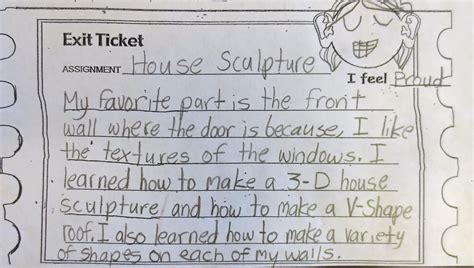 Exit Ticket
ASSIGNMENT House Sculpture
I feel Proud
My favorite part is the front
wall where the door is because, I like
the textures of the windows. I
learned how to make a 3-D house
sculpture and how to make a V-Shape
roof. I also learned how to make a variety
of shapes on each of My walls.